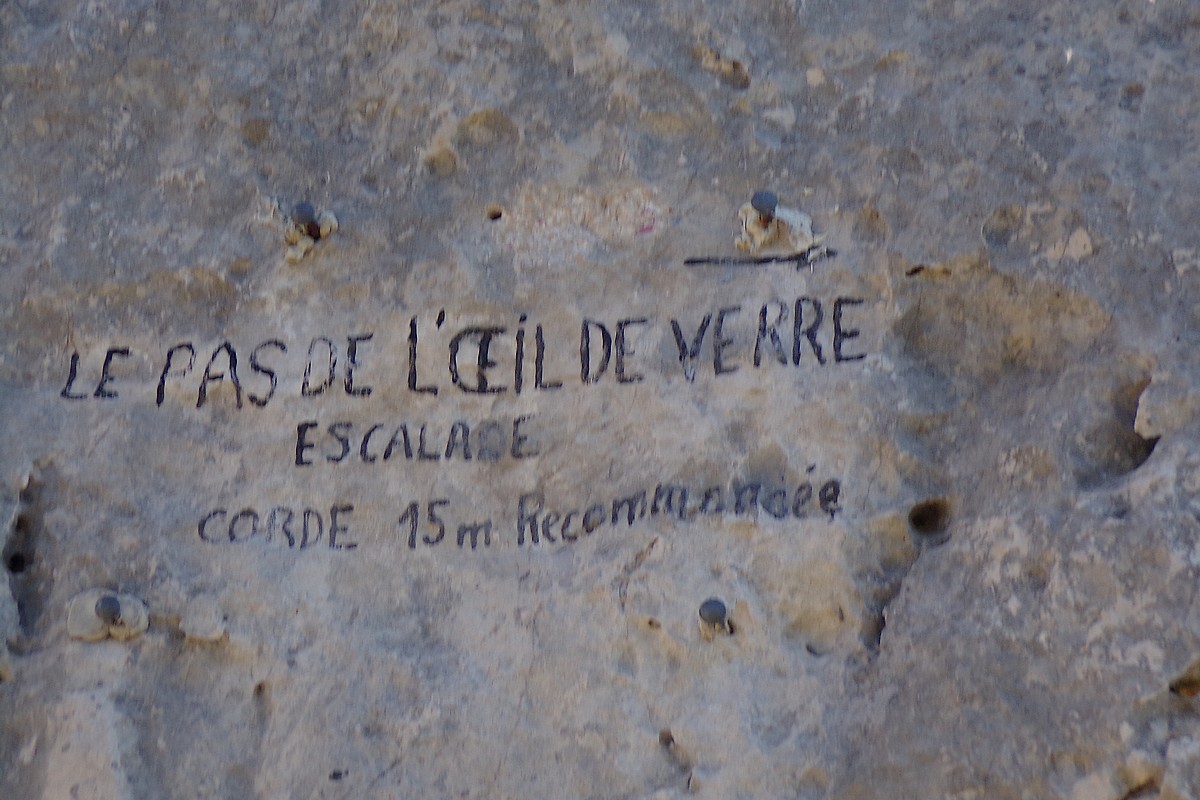 LE PAS DE L'ŒiL DE VERRE
ESCALADE
CORDE 15m Recommandée